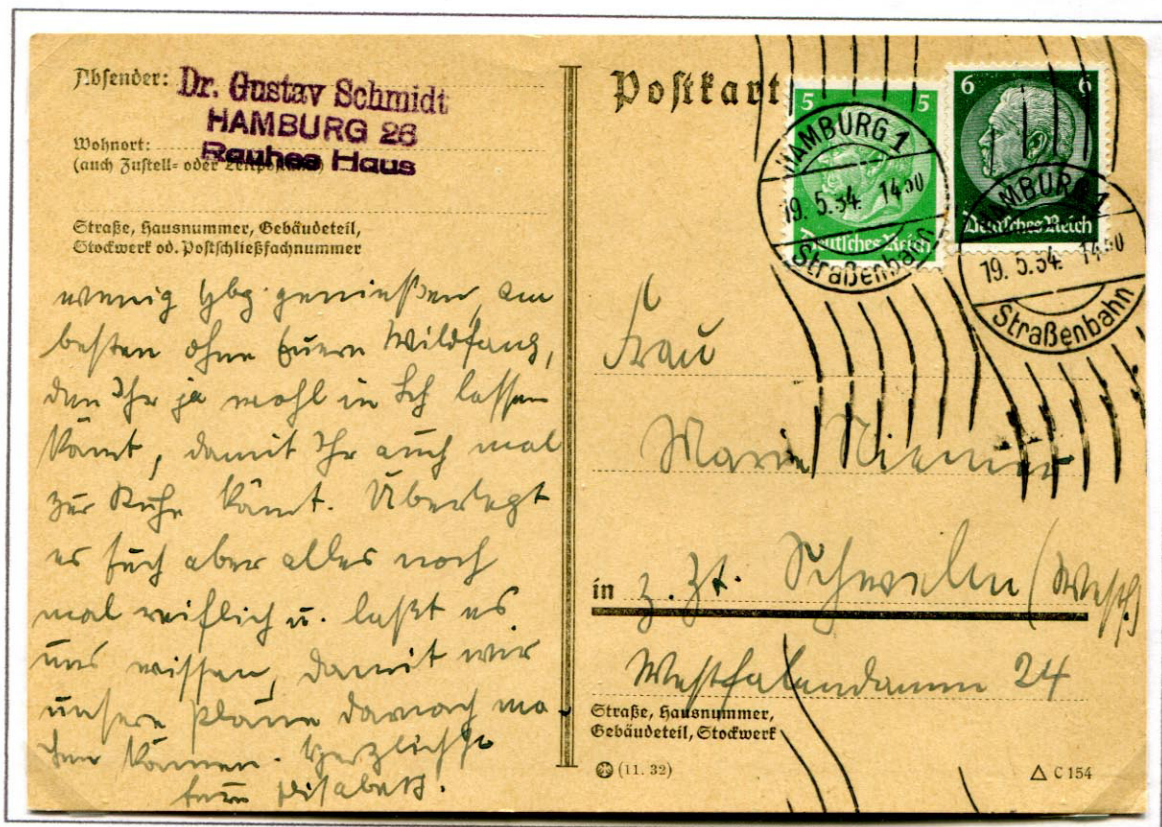 Absender:
Dr. Gustav Schmidt
HAMBURG 26
Wohnort:
Rauhes Haus
(auch Zustell- oder Leitpostamt)
Straße, Hausnummer, Gebäudeteil,
Stockwerk od. Postschließfachnummer
wenig Hbg. genießen, am
besten ohne Euern Wildfang,
den Ihr ja wohl in Sch lassen
könnt, damit Ihr auch mal
zur Ruhe kömt. Überlegt
es Euch aber alles noch
mal reiflich u. laßt es
uns wissen, damit wir
unsere Pläne darnach ma-
chen können. Herzlichst
Eure Elisabeth.
Postkarte
5 5
Deutsches Reich
6 6
Deutsches Reich
HAMBURG 1
19.5.34. 14 30
Straßenbahn
HAMBURG 1
19.5.34. 14 30
Straßenbahn
Frau
Marie Niemer
in z. Zt. Schwelm (Westf.)
Westfalendamm 24
Straße, Hausnummer,
Gebäudeteil, Stockwerk
(11. 32)
C 154